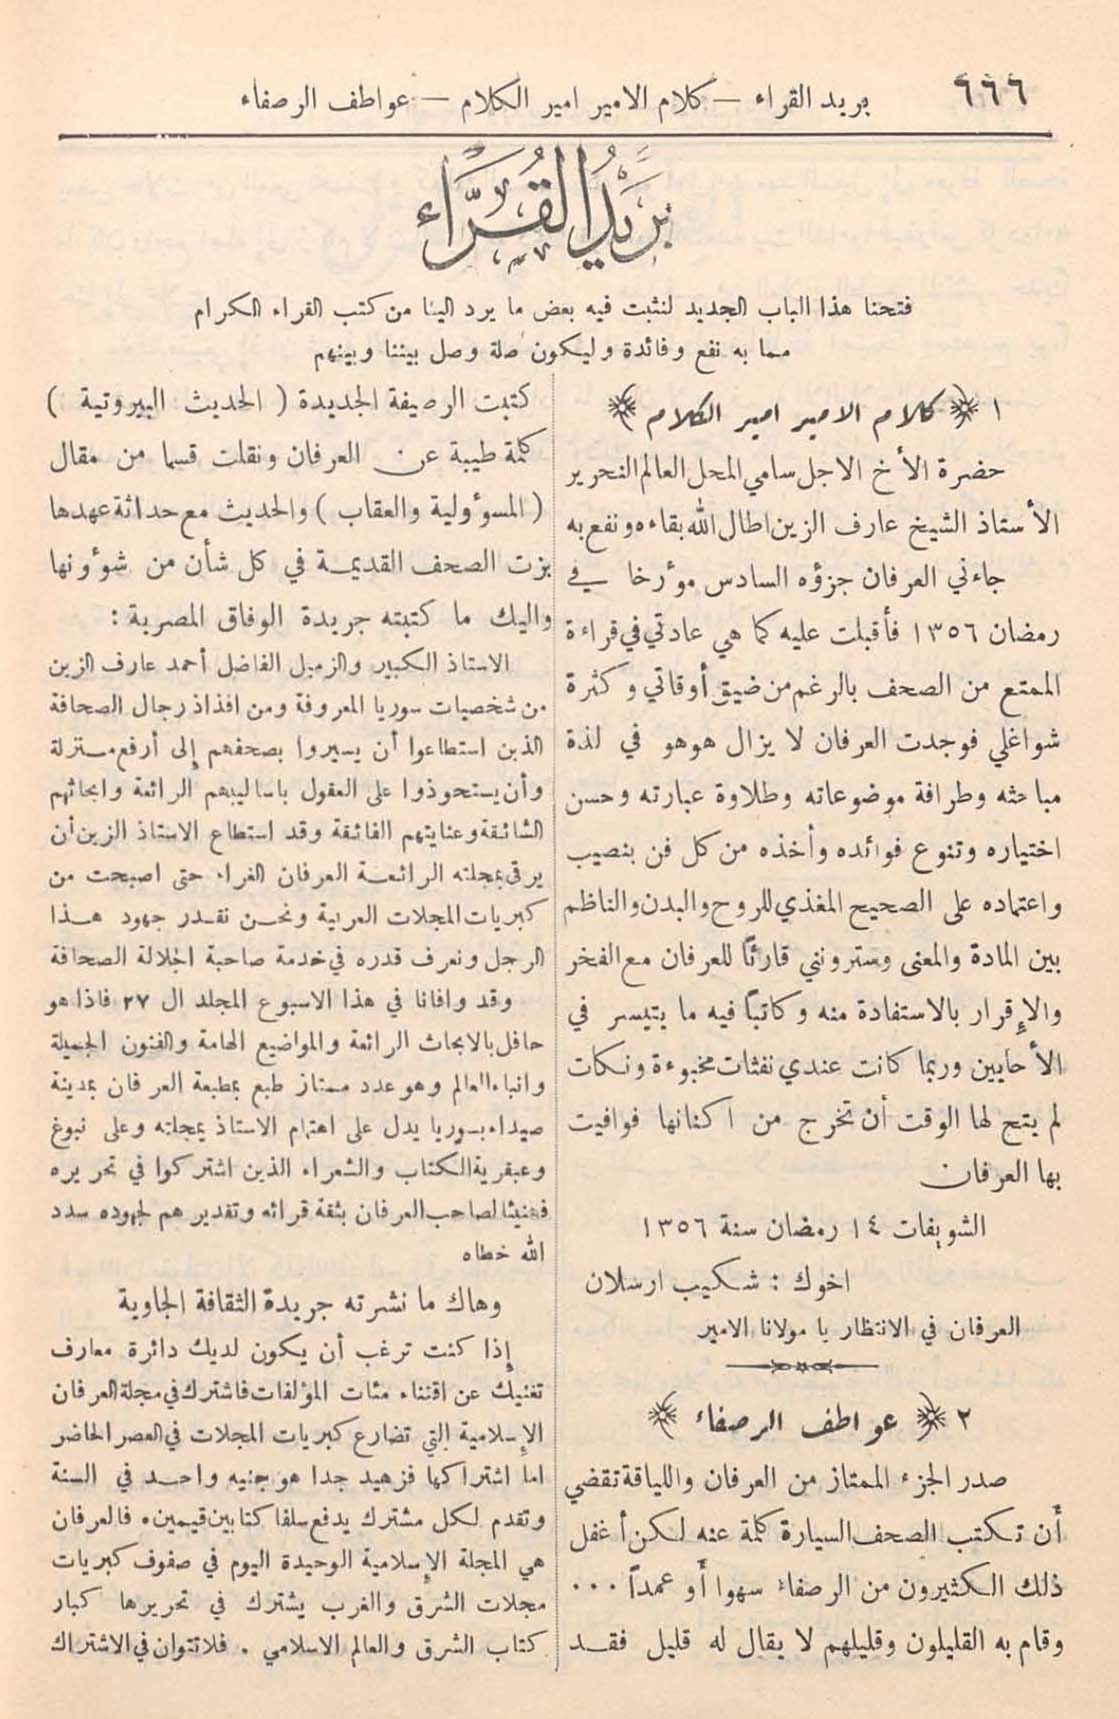 ٦٦٦
بريد القراء — كلام الامير امير الكلام — عواطف الرصفاء
بَريْدُ القُرَّاء
فتحنا هذا الباب الجديد لنثبت فيه بعض ما يرد الينا من كتب القراء الكرام
مما به نفع وفائدة وليكون صلة وصل بيننا وبينهم
١ ﴿ كلام الامير امير الكلام ﴾
حضرة الأخ الاجل سامي المحل العالم النحرير
الأستاذ الشيخ عارف الزين اطال الله بقاءه ونفع به
جاءني العرفان جزؤه السادس مؤرخا في
رمضان ١٣٥٦ فأقبلت عليه كما هي عادتي في قراءة
الممتع من الصحف بالرغم من ضيق أوقاتي وكثرة
شواغلي فوجدت العرفان لا يزال هوهو في لذة
مباحثه وطرافة موضوعاته وطلاوة عبارته وحسن
اختياره وتنوع فوائده وأخذه من كل فن بنصيب
واعتماده على الصحيح المغذي للروح والبدن والناظم
بين المادة والمعنى وسترونني قارئاً للعرفان مع الفخر
والإقرار بالاستفادة منه وكاتباً فيه ما يتيسر في
الأحايين وربما كانت عندي نفثات مخبوءة ونكات
لم يتح لها الوقت أن تخرج من اكنانها فوافيت
بها العرفان
الشويفات ١٤ رمضان سنة ١٣٥٦
اخوك : شكيب ارسلان
العرفان في الانتظار يا مولانا الامير
٢ ﴿ عواطف الرصفاء ﴾
صدر الجزء الممتاز من العرفان واللياقة تقضي
أن تكتب الصحف السيارة كلمة عنه لكن أغفل
ذلك الكثيرون من الرصفاء سهوا أو عمداً ...
وقام به القليلون وقليلهم لا يقال له قليل فقد
كتبت الرصيفة الجديدة ( الحديث البيروتية )
كلمة طيبة عن العرفان ونقلت قسما من مقال
( المسؤولية والعقاب ) والحديث مع حداثة عهدها
بزت الصحف القديمة في كل شأن من شؤونها
واليك ما كتبته جريدة الوفاق المصرية :
الاستاذ الكبير والزميل الفاضل أحمد عارف الزين
من شخصيات سوريا المعروفة ومن افذاذ رجال الصحافة
الذين استطاعوا أن يسيروا بصحفهم إلى أرفع منزلة
وأن يستحوذوا على العقول باساليبهم الرائعة وابحاثهم
الشائقة وعنايتهم الفائقة وقد استطاع الاستاذ الزين أن
يرقى بمجلته الرائعة العرفان الغراء حتى اصبحت من
كبريات المجلات العربية ونحن نقدر جهود هذا
الرجل ونعرف قدره في خدمة صاحبة الجلالة الصحافة
وقد وافانا في هذا الاسبوع المجلد ال ٢٧ فاذا هو
حافل بالابحاث الرائعة والمواضيع الهامة والفنون الجميلة
وانباء العالم وهو عدد ممتاز طبع بمطبعة العرفان بمدينة
صيداء بسوريا يدل على اهتمام الاستاذ بمجلته وعلى نبوغ
وعبقرية الكتاب والشعراء الذين اشتركوا في تحريره
فهنيئا لصاحب العرفان بثقة قرائه وتقديرهم لجهوده سدد
الله خطاه
وهاك ما نشرته جريدة الثقافة الجاوية
إذا كنت ترغب أن يكون لديك دائرة معارف
تغنيك عن اقتناء مئات المؤلفات فاشترك في مجلة العرفان
الإسلامية التي تضارع كبريات المجلات في العصر الحاضر
اما اشتراكها فزهيد جدا هو جنيه واحد في السنة
وتقدم لكل مشترك يدفع سلفا كتابين قيمين . فالعرفان
هي المجلة الإسلامية الوحيدة اليوم في صفوف كبريات
مجلات الشرق والغرب يشترك في تحريرها كبار
كتاب الشرق والعالم الاسلامي . فلا تتوان في الاشتراك